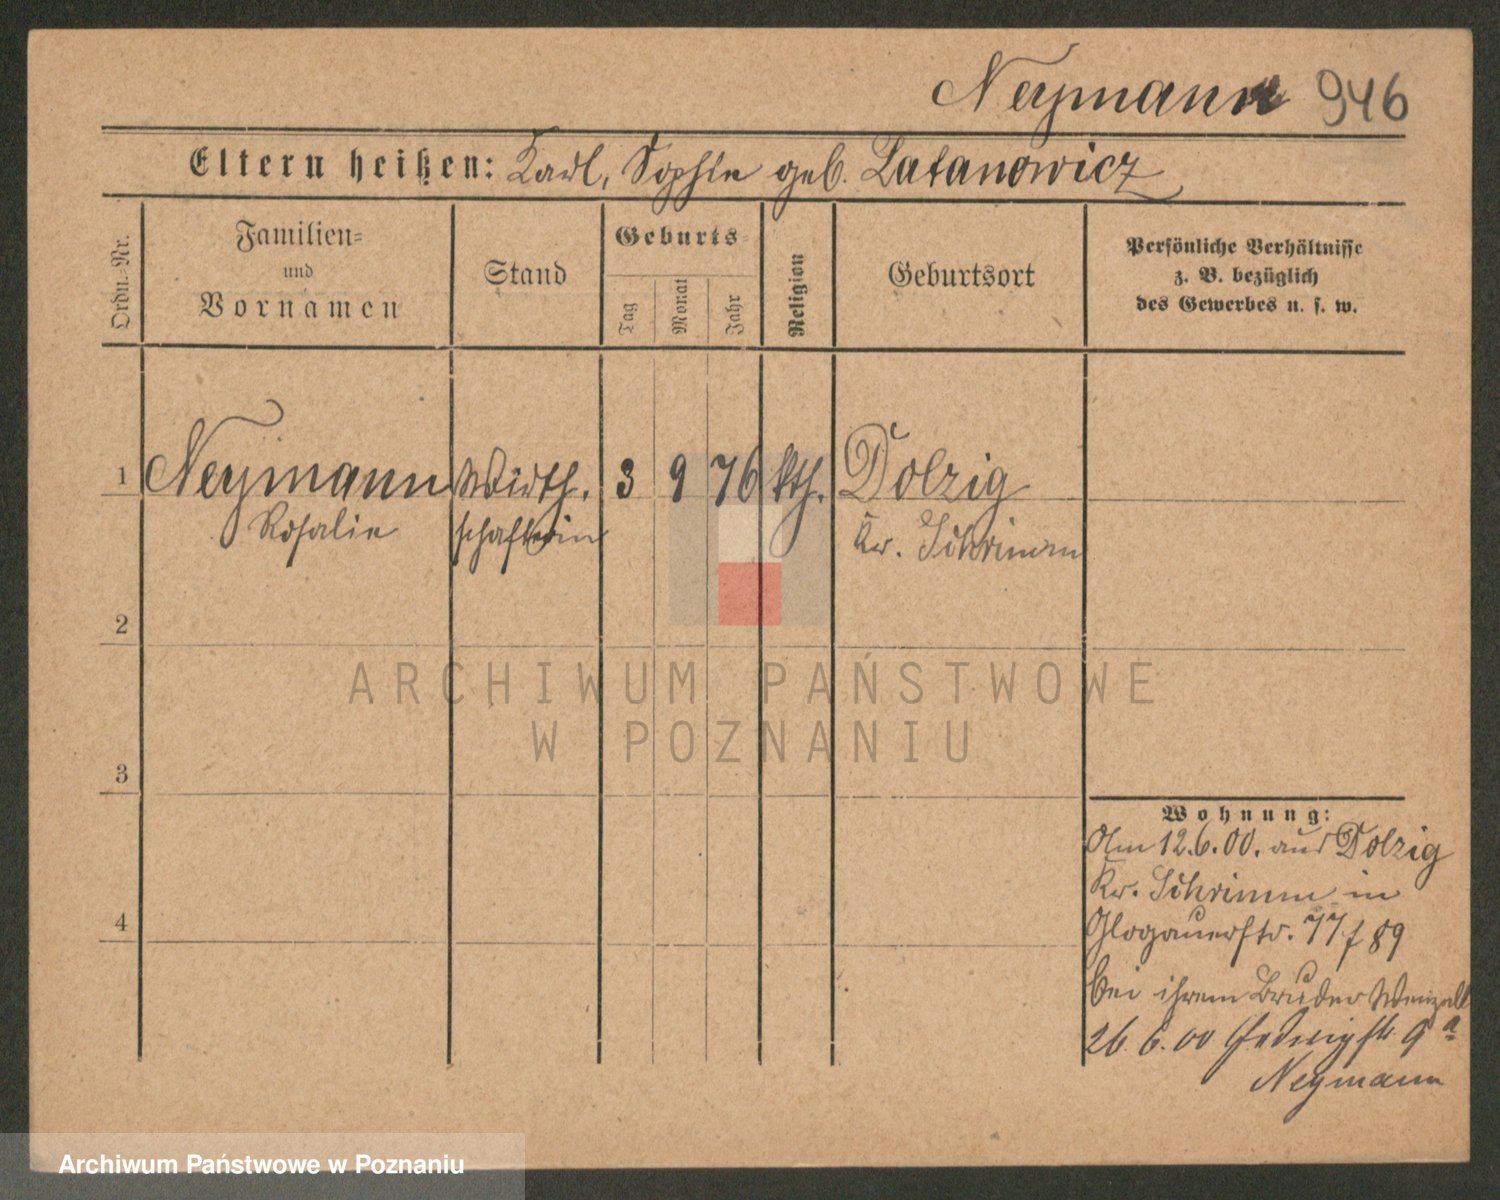 Neymann 946
Eltern heißen: Karl, Sophie geb. Latanowicz
Ordn.-Nr.
Familien-
und
Vornamen
Stand
Geburts-
Tag
Monat
Jahr
Religion
Geburtsort
Persönliche Verhältnisse
z. B. bezüglich
des Gewerbes u. s. w.
1 Neymann Wirth. 3 9 76 kth. Dolzig
Rosalie schafterin Kr. Schrimm
2
3
4
Wohnung:
Am 12.6.00. aus Dolzig
Kr. Schrimm in
Glogauerstr. 77 / 89
bei ihrem Bruder Wenzell
26. 6. 00 Hedwigstr. 9 a
Neymann
ARCHIWUM PAŃSTWOWE
W POZNANIU
Archiwum Państwowe w Poznaniu